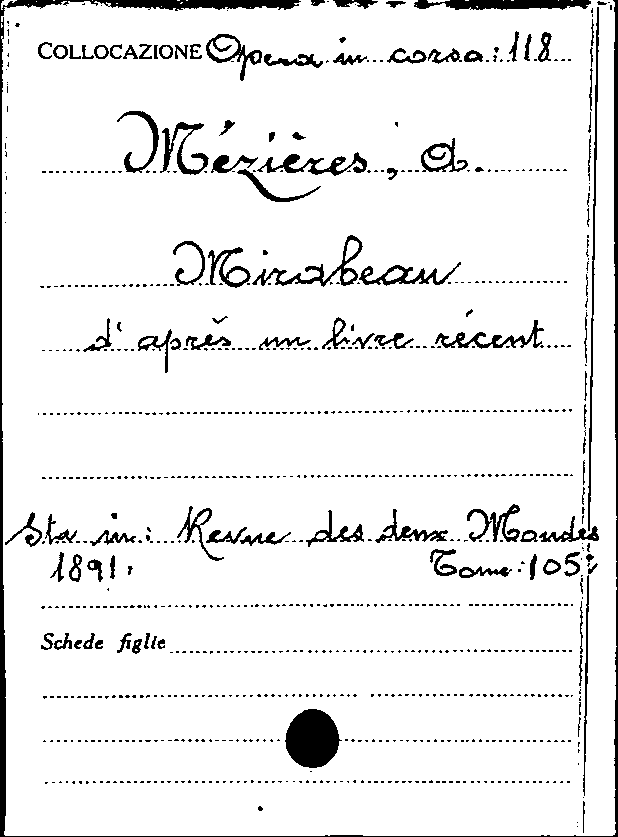 COLLOCAZIONE Opera in corso: 118
Mézières, A.
Mirabeau
d'après un livre récent
Sta in: Revue des deux Mondes
1891. Tome: 105º
Schede figlie